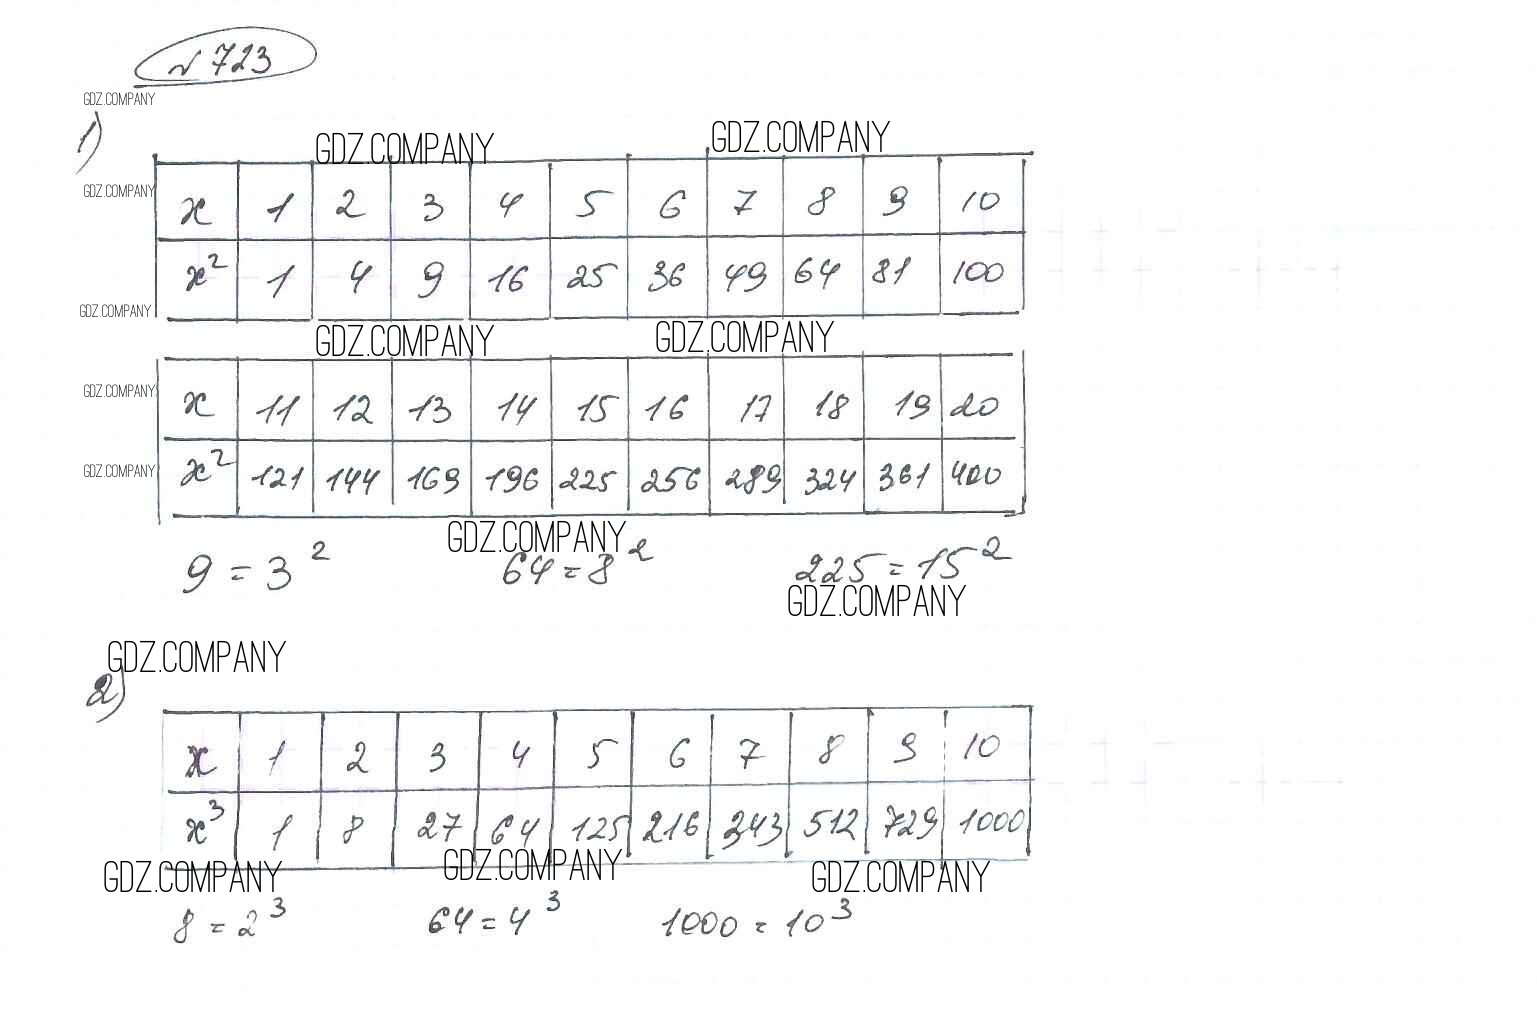 № 723
GDZ.COMPANY
1)
GDZ.COMPANY GDZ.COMPANY
GDZ.COMPANY
x 1 2 3 4 5 6 7 8 9 10
x² 1 4 9 16 25 36 49 64 81 100
GDZ.COMPANY
GDZ.COMPANY GDZ.COMPANY
GDZ.COMPANY
x 11 12 13 14 15 16 17 18 19 20
GDZ.COMPANY
x² 121 144 169 196 225 256 289 324 361 400
GDZ.COMPANY
9 = 3² 64 = 8² 225 = 15²
GDZ.COMPANY
GDZ.COMPANY
2)
x 1 2 3 4 5 6 7 8 9 10
x³ 1 8 27 64 125 216 343 512 729 1000
GDZ.COMPANY GDZ.COMPANY GDZ.COMPANY
8 = 2³ 64 = 4³ 1000 = 10³